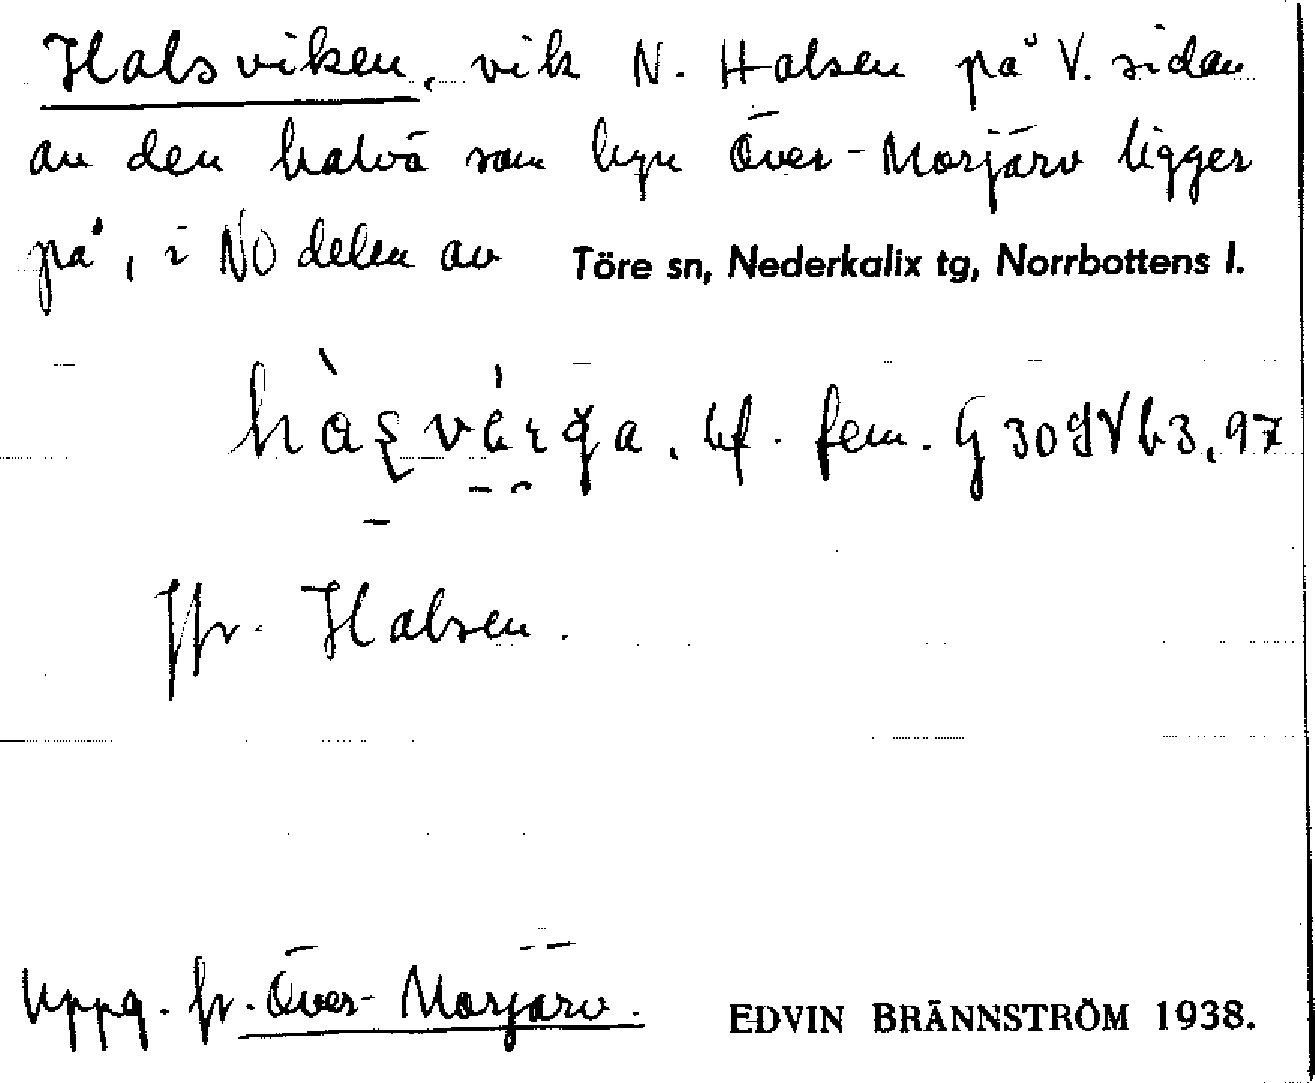 Halsviken, vik N. Halsen på V. sidan
av den halvö som byn Över-Morjärv ligger
på, i NO delen av Töre sn, Nederkalix tg, Norrbottens l.
bf. fem. G 30 9 V b 3, 97
Jfr. Halsen.
Uppg. fr. Över-Morjärv. EDVIN BRÄNNSTRÖM 1938.